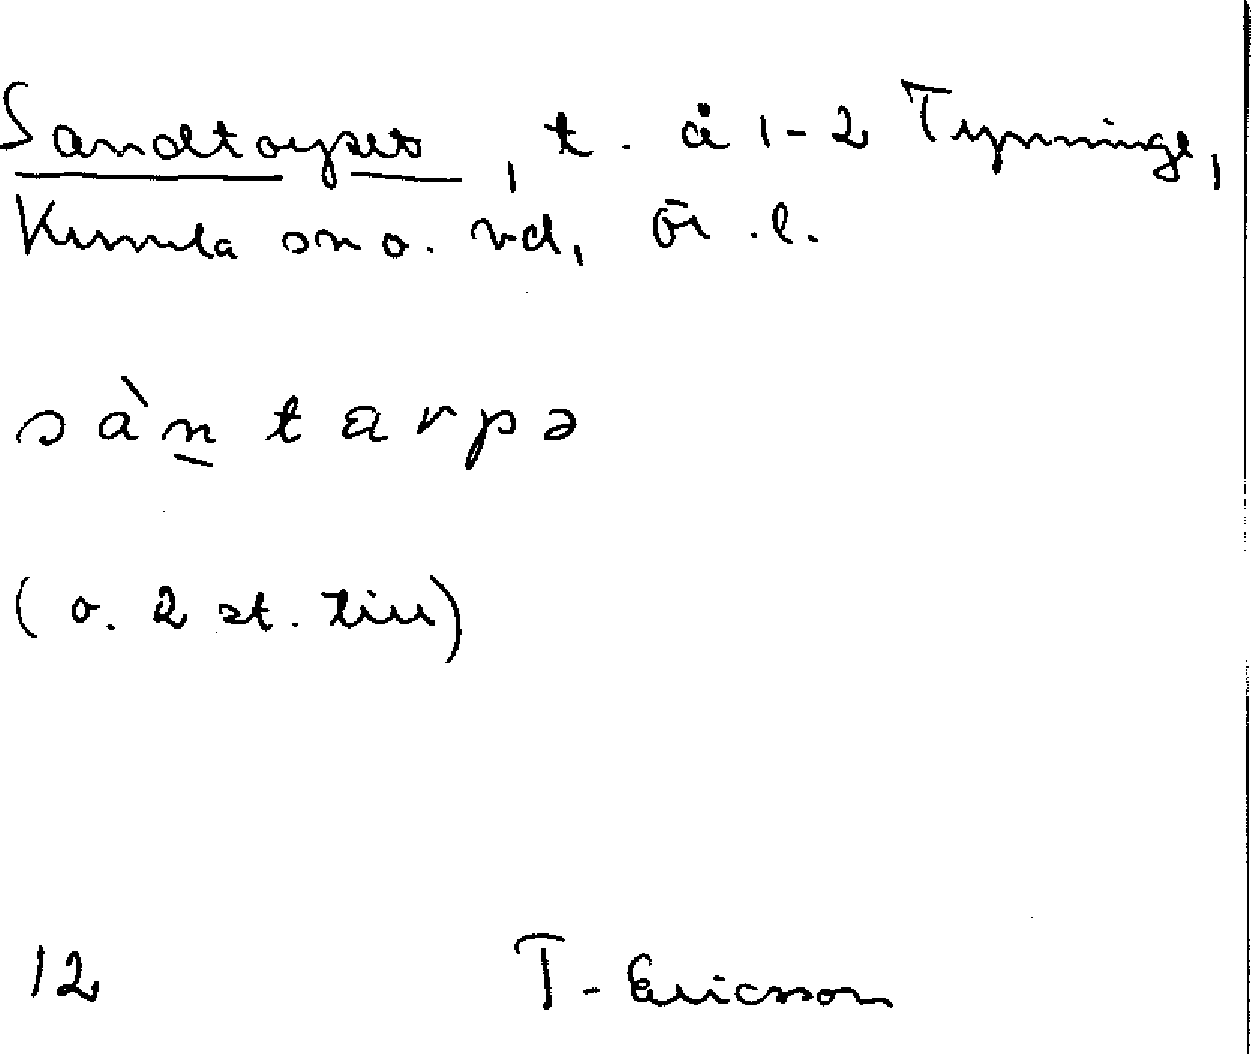 Sandtorpet, t. å 1-2 Tynninge,
Kumla sn o. hd, Ör. l.
sàntarpə
(o. 2 st. till)
12 T. Ericsson